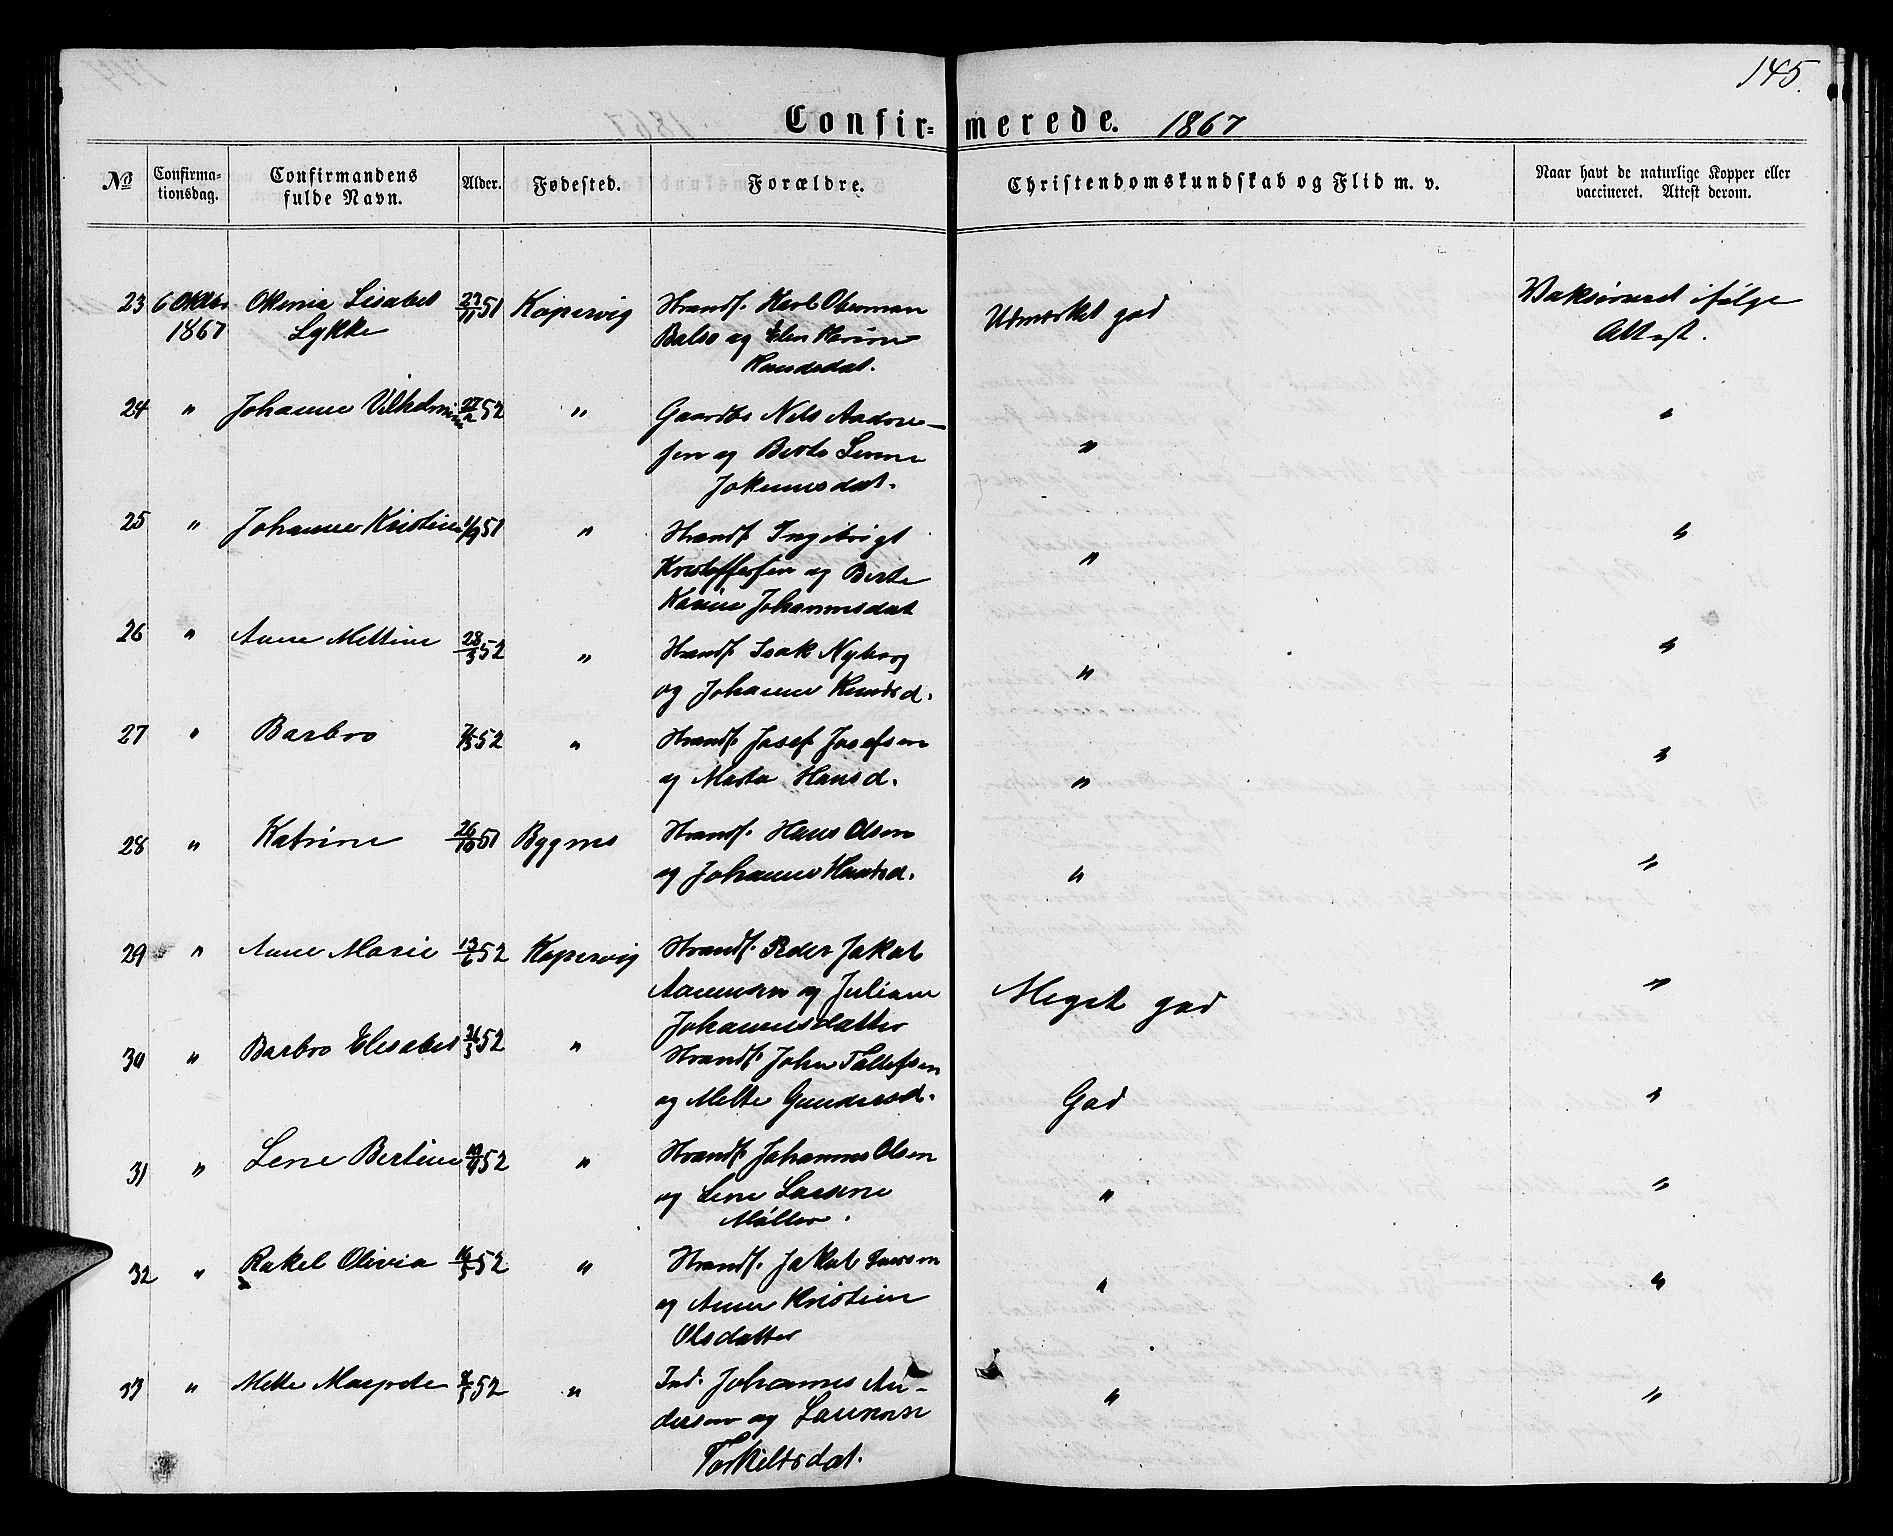 145.
Confir= merede. 1867
No
Confirma-
tionsdag.
Confirmandens
fulde Navn.
Alder.
Fødested.
Forældre.
Christendomskundskab og Flid m. v.
Naar havt de naturlige Kopper eller
vaccineret. Attest derom.
23 6 Oktbr Lisabet 51 Kopervig Strandf. Karl
1867 Lykke og Elen
Udmærket god Vaksineret ifølge
Attest.
24 " Johanne Vilhelmine 52 " Gaardbr Nels
sen og Berte
" "
25 " Johanne Kristine 51 " Strandf. Ingebrigt
Kristoffersen og Berte
Karine Johannesdat
" "
26 " Anne Mettine 28/3 52 " Strandf. Isak Nyborg
og Johanne Knudsd.
" "
27 " Barbro 52 " Strandf. Josef Josefsen
og Marta Hansd.
" "
28 " Katrine 26/10 51 Bygnes Strandf. Hans Olsen
og Johanne
" "
29 " Anne Marie 13/6 52 Kopervig Strandf. Peder Jakob
og Juliane
Johannesdatter
Meget god "
30 " Barbro Elisabet 52 " Strandf. John Tollefsen
og Mette Gundersd.
God "
31 " Lene Bertine 52 " Strandf. Johannes Olsen
og Lene
Møller.
" "
32 " Rakel Olivia 16/5 52 " Strandf. Jakob
og Anne Kristine
Olsdatter
" "
33 " Mette Margrete 52 " Ind. Johannes An-
dersen og
Torkeltsdat.
" "